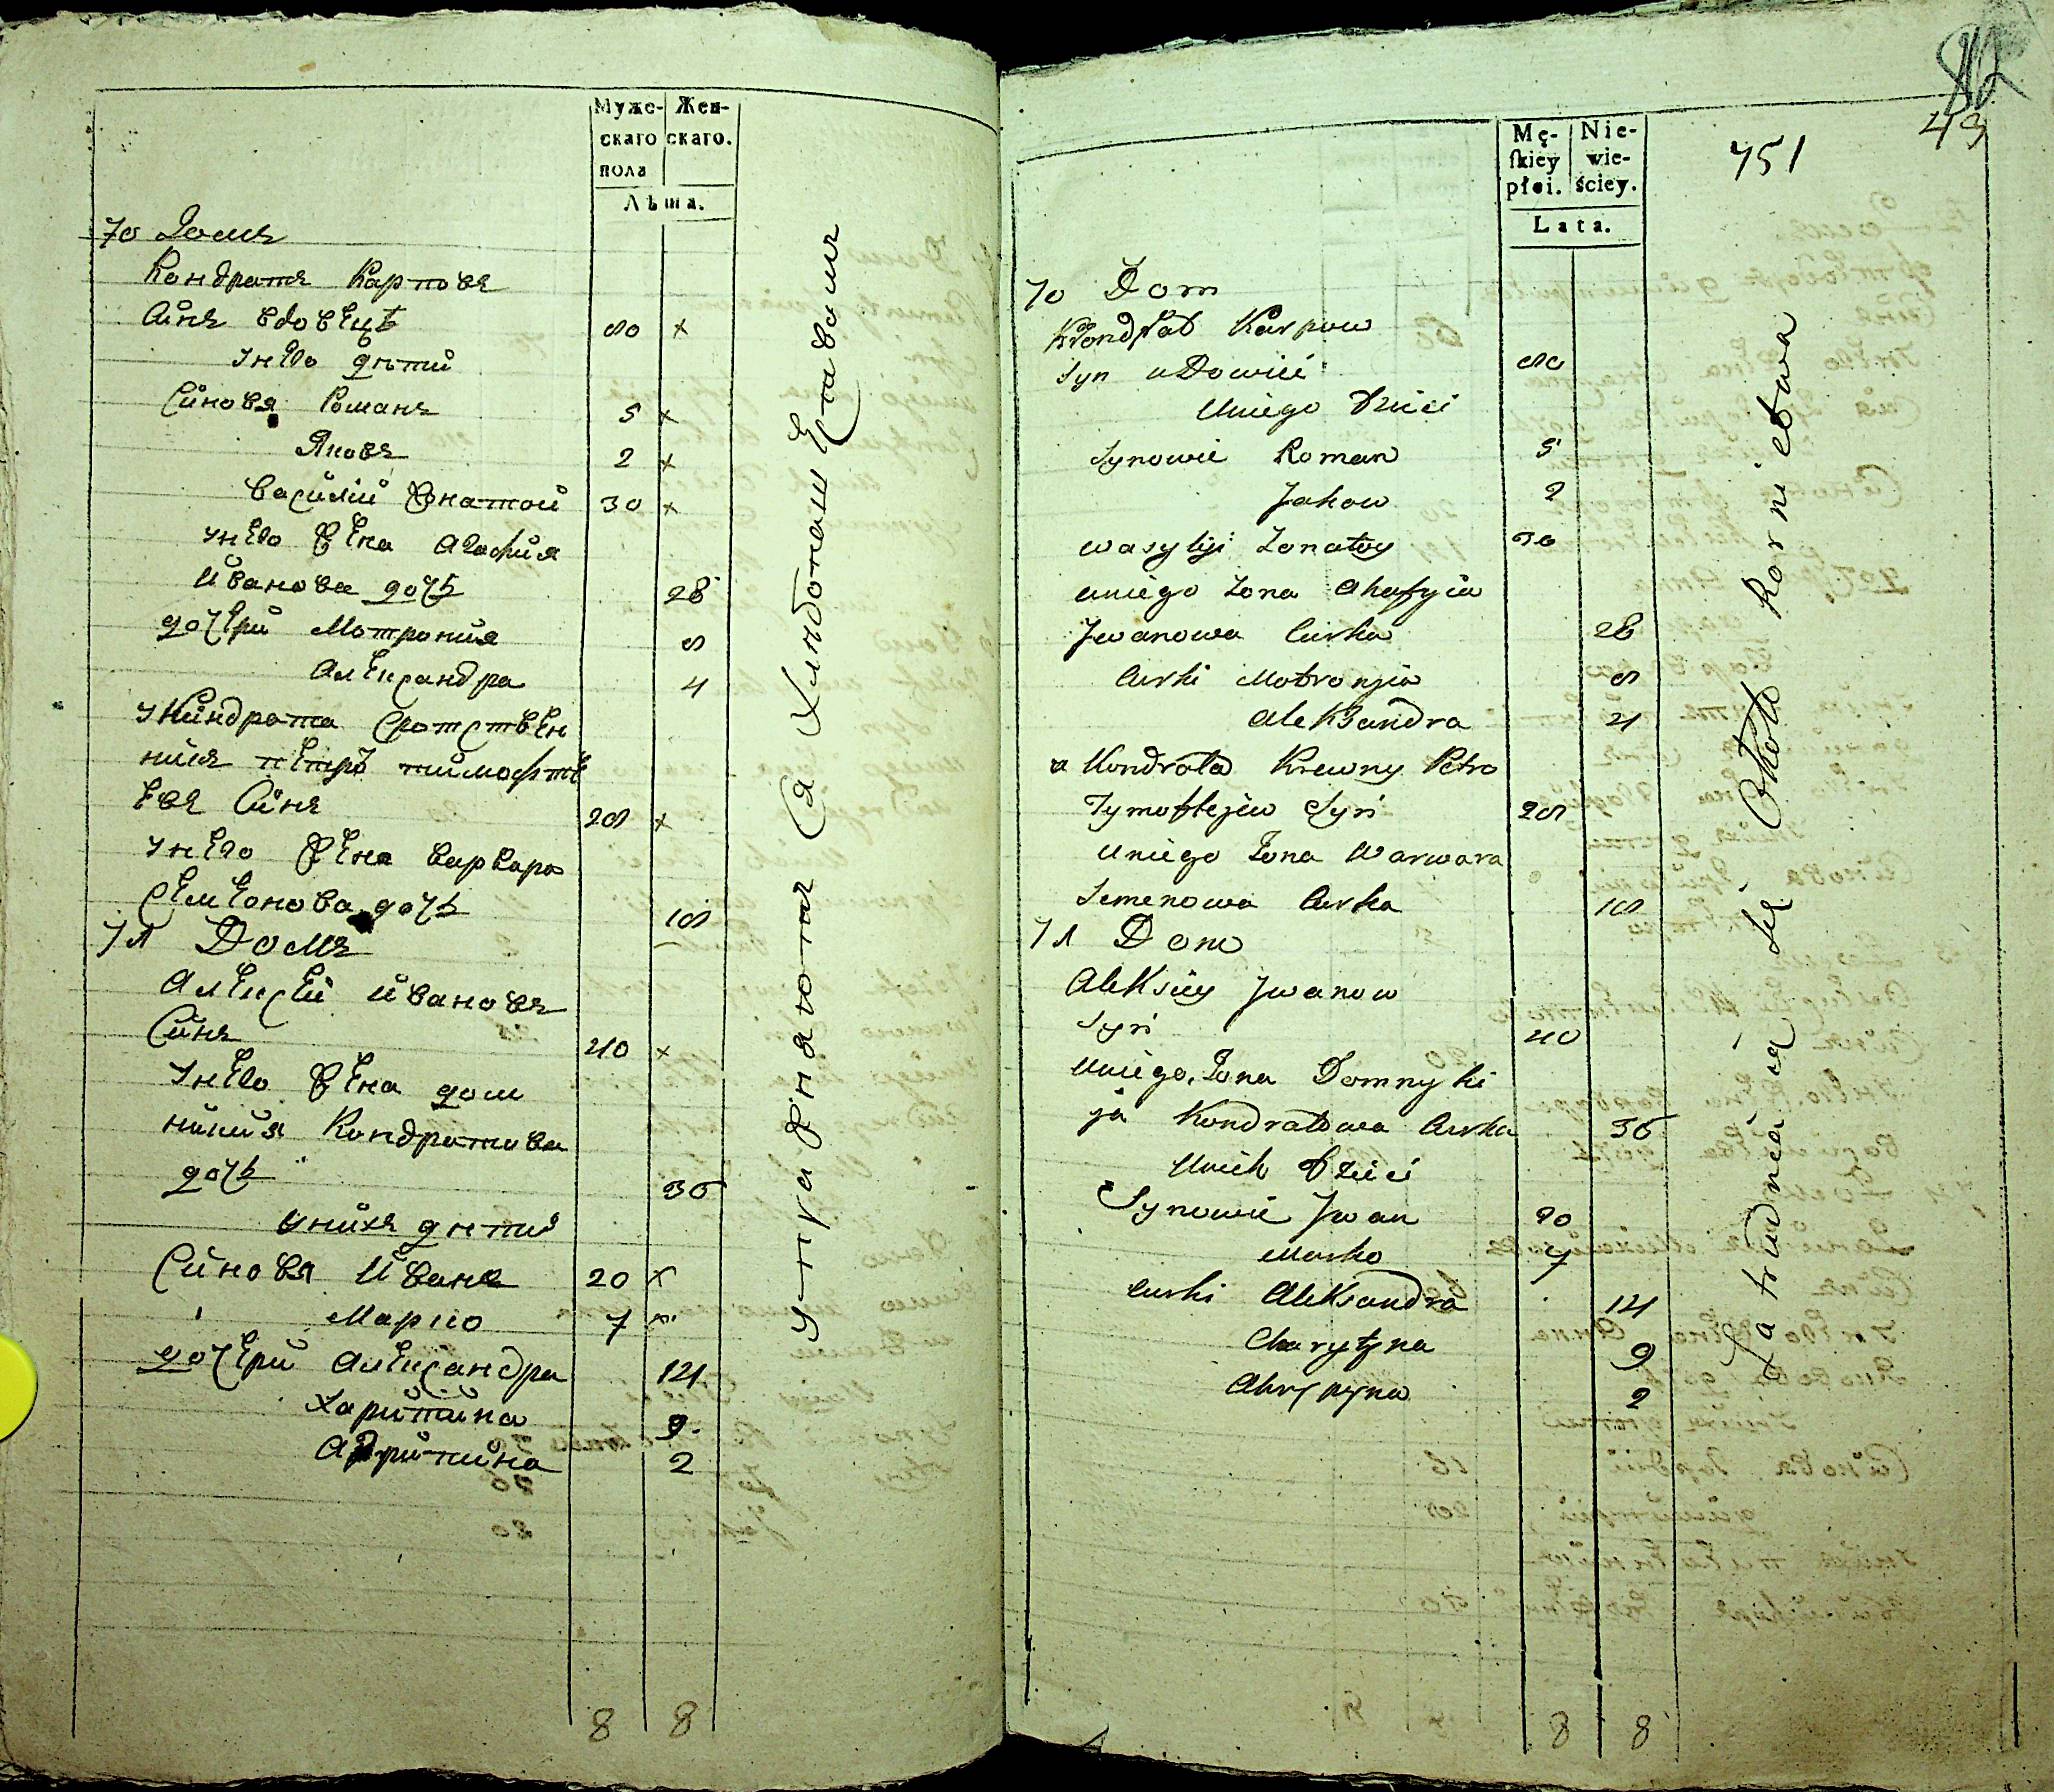 Муже-
скаго
пола
Жен-
скаго.
Лѣта.
70 Домъ
Кондратъ Карповъ
Синъ вдовецъ 80 x
У него дѣти
Синовя Романъ 5 x
Яковъ 2 x
Василій Жонатой 30 x
У него Жена Агафия
Иванова дочь 28
дочери Мотрония 8
Александра 4
У Киндрата Сротствен
никъ Петръ Тимофѣ
евъ Синъ 28 x
У него Жена Варвара
Семенова дочь 18
71 Домъ
Алексей Ивановъ
Синъ 40 x
У него Жена Дом
никия Кондратова
дочь 36
У нихъ дѣти
Синовя Иванъ 20 x
Марко 7 x
дочери Александра 14
Харитина 9
Агрипина 2
8 8
упражняются Хлѣбопашествомъ
82
43
751
Mę-
skiey
płci.
Nie-
wie-
ściey.
Lata.
70 Dom
Kondrat Karpow
Syn wdowiec 80
Uniego Dzieci
Synowie Roman 5
Jakow 2
Wasylij Zonatoy 30
uniego Zona Ahafyia
Jwanowa Curka 28
Curki Motronyia 8
Aleksandra 4
u Kondrata Krewny Petro
Tymoftejew Syn 28
Uniego Zona Warwara
Semenowa Curka 18
71 Dom
Aleksiey Jwanow
Syn 40
Uniego Zona Domnyki
ja Kondratowa Curka 36
Unich Dzieci
Synowie Jwan 20
Marko 7
Curki Aleksandra 14
Charytyna 9
Ahrypyna 2
8 8
Zatrudniaią się Około Rolnictwa